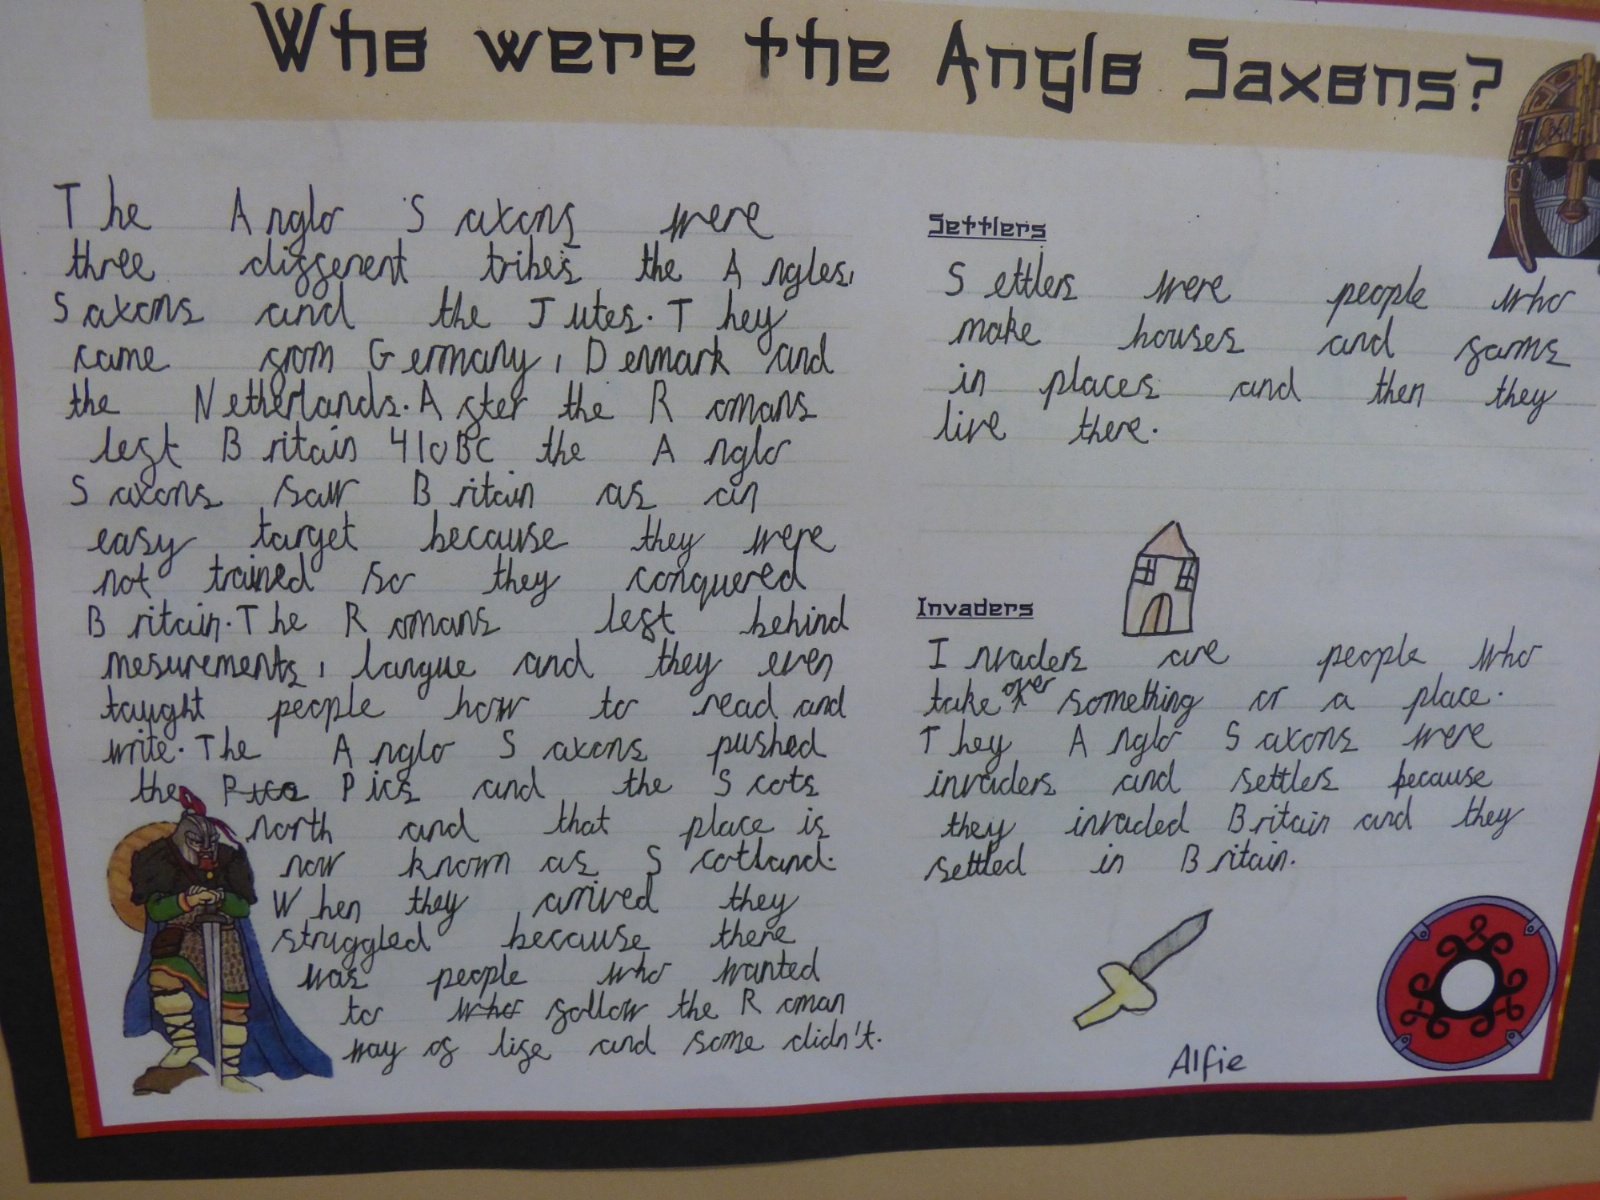 Who were the Anglo Saxons?
The Anglo Saxons were
three different tribes the Angles,
Saxons and the Jutes. They
came from Germany, Denmark and
the Netherlands. After the Romans
left Britain 410BC the Anglo
Saxons saw Britain as an
easy target because they were
not trained so they conquered
Britain. The Romans left behind
mesurements, langue and they even
taught people how to read and
write. The Anglo Saxons pushed
the Pics Pics and the Scots
north and that place is
now known as Scotland.
When they arrived they
struggled because there
was people who wanted
to who follow the Roman
way of life and some didn't.
Settlers
Settlers were people who
make houses and farms
in places and then they
live there.
Invaders
Invaders are people who
take over something or a place.
They Anglo Saxons were
invaders and settlers because
they invaded Britain and they
settled in Britain.
Alfie